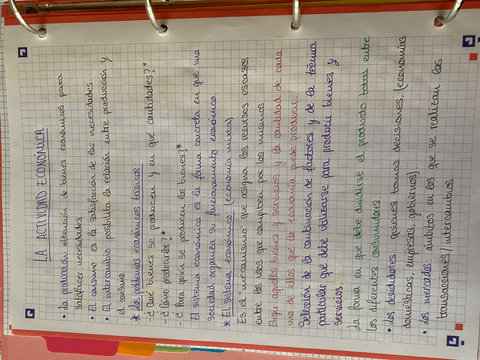 LA ACTIVIDAD ECONÓMICA
• La producción obtención de bienes económicos para
satisfacer necesidades.
• El consumo es la satisfacción de las necesidades.
• El intercambio posibilita la relación entre producción y
el consumo.
* Los problemas económicos básicos
- ¿Qué bienes se producen y en qué cantidades?*
- ¿Cómo producirlos?*
- ¿Para quién se producen los bienes?*
El sistema económico es la forma concreta en que una
sociedad organiza su funcionamiento económico.
* El sistema económico: (economía mixta)
Es el mecanismo que asigna los recursos escasos
entre los usos que compiten por los mismos
Elegir aquellos bienes y servicios y la cantidad de cada
uno de ellos que la economía puede producir.
Selección de la combinación de factores y de la técnica
particular que debe utilizarse para producir bienes y
servicios.
La forma en que debe dividirse el producto total entre
los diferentes consumidores.
• Los decididores quienes toman decisiones, (economías
domésticas, empresas, gobiernos)
• Los mercados ámbitos en los que se realizan las
transacciones, intercambios